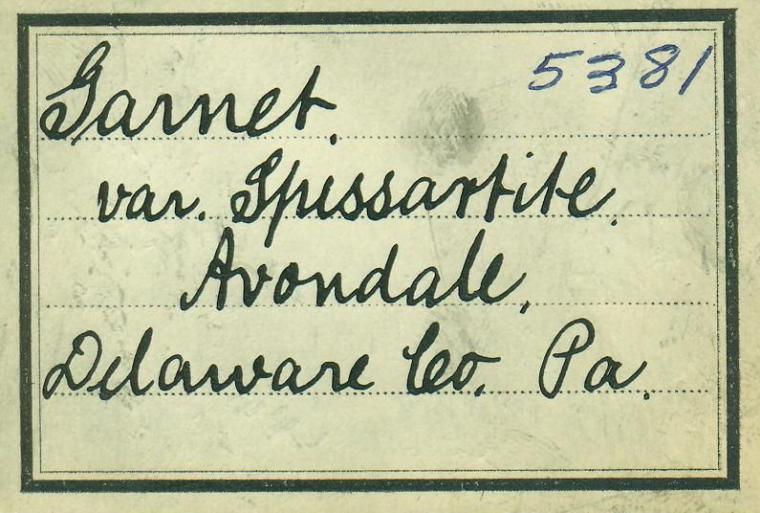 5381
Garnet.
var. Spessartite.
Avondale,
Delaware Co. Pa.